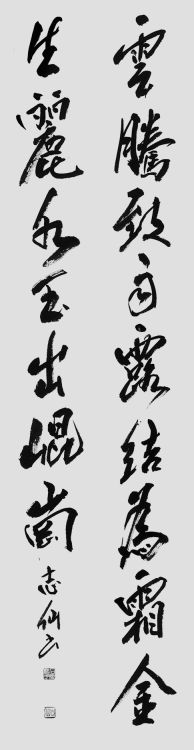 雲騰致雨露結為霜金
生麗水玉出崐崗
志仙书